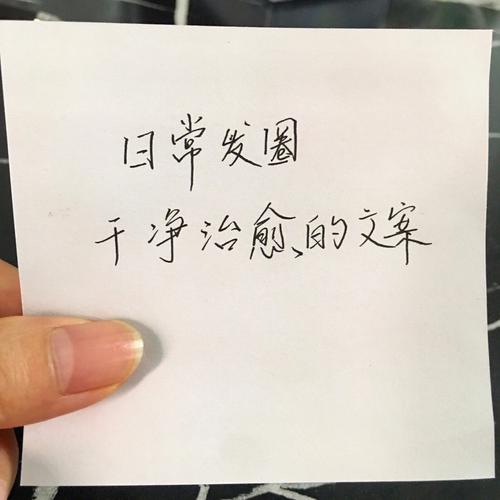 日常发圈
干净治愈的文案